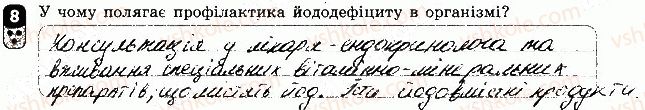 8 У чому полягає профілактика йододефіциту в організмі?
Консультація у лікаря-ендокринолога та
вживання спеціальних вітамінно-мінеральних
препаратів, що містять йод. Їсти йодовмісні продукти.